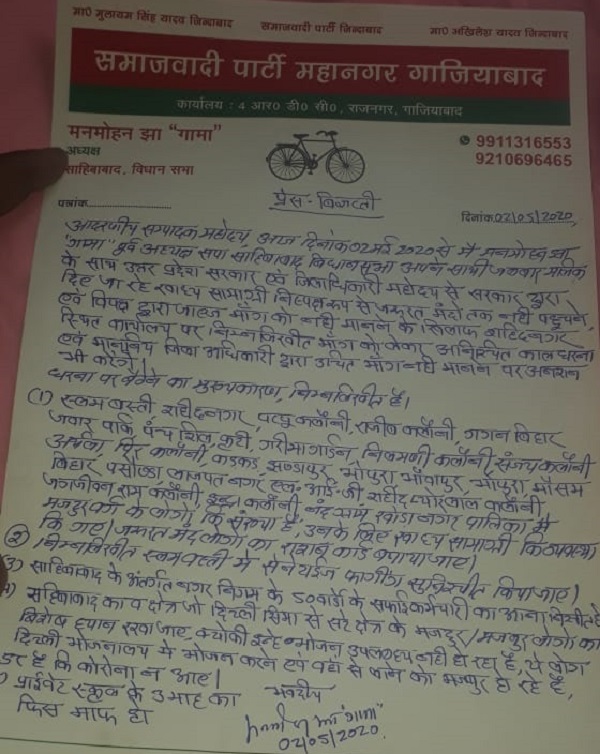 मा0 मुलायम सिंह यादव जिन्दाबाद समाजवादी पार्टी जिन्दाबाद मा0 अखिलेश यादव जिन्दाबाद
समाजवादी पार्टी महानगर गाजियाबाद
कार्यालय : 4 आर0 डी0 सी0, राजनगर, गाजियाबाद
मनमोहन झा "गामा"
अध्यक्ष
साहिबाबाद, विधान सभा
9911316553
9210696465
पत्रांक
प्रेस-विज्ञप्ती
दिनांक 02/05/2020
आदरणीय सम्पादक महोदय, आज दिनांक 02 मई 2020 से मैं मनमोहन झा
"गामा" पूर्व अध्यक्ष सपा साहिबाबाद विधानसभा अपने साथी जब्बार मलिक
के साथ उत्तर प्रदेश सरकार एवं जिलाधिकारी महोदय से सरकार द्वारा
दिए जा रहे खाध्य सामाग्री निष्पक्ष रूप से जरूरत मंदो तक नही पहुचने
एवं विपक्ष द्वारा जाहज मांग को नही मानने के खिलाफ शहिदनगर
स्थित कार्यालय पर निम्नलिखीत मांग को लेकर अनिश्चित काल धरना
एवं मान्यनिय जिला अधिकारी द्वारा उचित मांग नही मानने पर अनशन
भी करेंगे।
धरना पर बैठने का मुख्यकारण, निम्नलिखित है।
(1) स्लम बस्ती, शहिदनगर, पप्पु कलौनी, राजीव कलौनी, गगन विहार
जवाहर पार्क, पंच शिल, कुटी, गरीमा गार्डन, निलमणी कलौनी, संजय कलौनी
अर्थला, कलौनी, कडकड, झण्डापुर, भोपुरा, मौसम
विहार पसोण्डा, लाजपत नगर एल. आई. जी शहीद कलौनी
जगजीवन राम कलौनी, कलौनी, नगर पालिका में
मजदुर वर्ग के लोगो कि संख्या है, उनके लिए खाध्य सामाग्री कि व्यवस्था
कि जाए। जरूरत मंद लोगो का राशन कार्ड बनाया जाए।
② निम्नलिखीत स्लम वस्ती में सेनेटाईज फागींग सुनिश्चीत किया जाए।
3) साहिबाबाद के अंतर्गत नगर निगम के 50 वार्डो के सफाई कर्मचारी का आना
साहिबाबाद का व क्षेत्र जो दिल्ली सिमा से सटे क्षेत्र के मजदुर/मजबुर लोगो का
विशेष ध्यान रखा जाए, क्योकी इन्हे भोजन उपलब्ध नही हो रहा है, ये लोग
दिल्ली भोजनालय में भोजन करने एवं वहाँ से लाने को मजबुर हो रहे है,
डर है कि कोरोना न आए।
) प्राईवेट स्कूल के 3 माह का
फिस माफ हो
भवदीय
02/05/2020